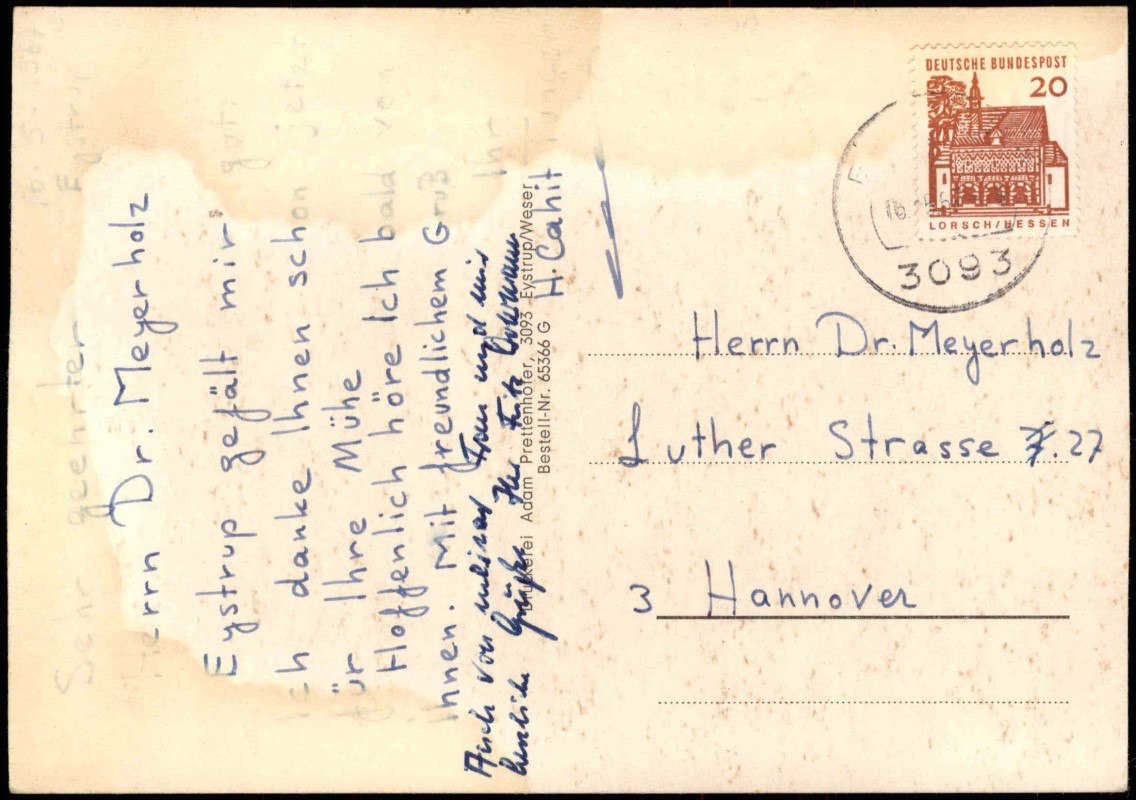 10. 5. 1967
Eystrup
Sehr geehrter
Herrn Dr. Meyerholz
Eystrup gefält mir gut.
Ich danke Ihnen schon jetzt
für Ihre Mühe
Hoffenlich höre Ich bald von
Ihnen. Mit freundlichem Gruß
Ihr
H. Cahit
Auch von meiner Frau und mir
herzliche Grüße Ihr Fritz
Druckerei Adam Prettenhofer, 3093 Eystrup/Weser
Bestell-Nr. 65366 G
DEUTSCHE BUNDESPOST
20
LORSCH/HESSEN
3093
Herrn Dr. Meyerholz
Luther Strasse 27
Hannover